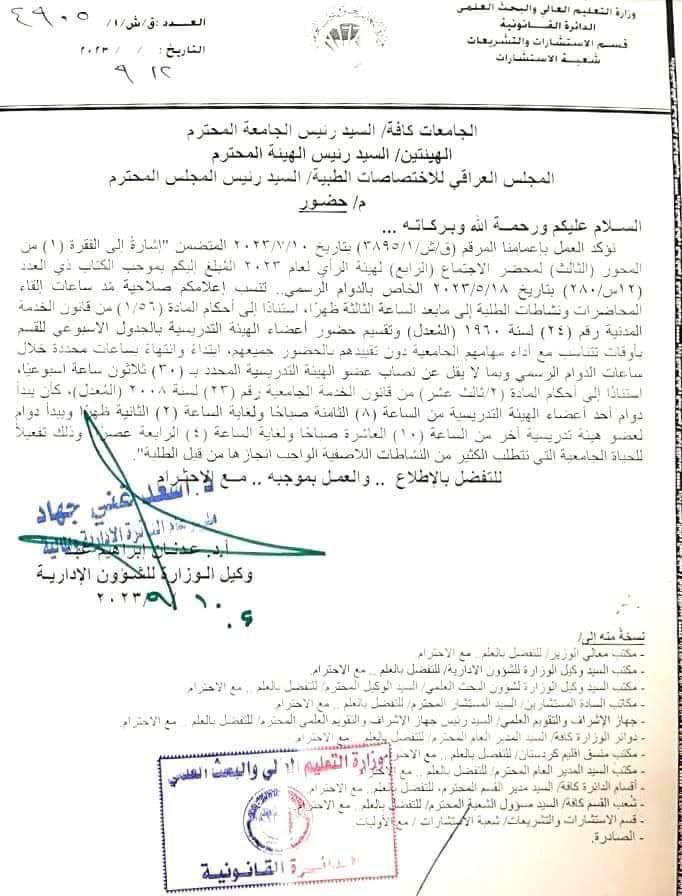 وزارة التعليم العالي والبحث العلمي
الدائرة القـانـونية
قسم الاستشارات والتشريعات
شعبة الاستشارات
العـدد: ق/ش/١/ ٤٩٠٥
التاريخ: / / ٢٠٢٣
١٢ ٩
الجامعات كافة/ السيد رئيس الجامعة المحترم
الهيئتين/ السيد رئيس الهيئة المحترم
المجلس العراقي للاختصاصات الطبية/ السيد رئيس المجلس المحترم
م/ حضور
السـلام عليكم ورحمـة الله وبـركاتـه ...
نؤكد العمل بإعمامنا المرقم (ق/ش/٣٨٩٥/١) بتاريخ ٢٠٢٣/٧/١٠ المتضمن "إشارةً إلى الفقرة (١) من
المحور (الثالث) لمحضر الاجتماع (الرابع) لهيئة الرأي لعام ٢٠٢٣ المُبلغ إليكم بموجب الكتاب ذي العدد
(١٢س/٢٨٠) بتاريخ ٢٠٢٣/٥/١٨ الخاص بالدوام الرسمي.. تنسب إعلامكم صلاحية مُد ساعات القاء
المحاضرات ونشاطات الطلبة إلى مابعد الساعة الثالثة ظهرًا، استنادًا إلى أحكام المادة (١/٥٦) من قانون الخدمة
المدنية رقم (٢٤) لسنة ١٩٦٠ (المُعدل) وتقسيم حضور أعضاء الهيئة التدريسية بالجدول الاسبوعي للقسم
بأوقات تتناسب مع أداء مهامهم الجامعية دون تقييدهم بالحضور جميعهم، ابتداءً وانتهاءً بساعات محددة خلال
ساعات الدوام الرسمي وبما لا يقل عن نصاب عضو الهيئة التدريسية المحدد بـ (٣٠) ثلاثون ساعة اسبوعيًا،
استنادًا إلى أحكام المادة (٢/ثالث عشر) من قانون الخدمة الجامعية رقم (٢٣) لسنة ٢٠٠٨ (المُعدل)، كأن يبدأ
دوام أحد أعضاء الهيئة التدريسية من الساعة (٨) الثامنة صباحًا ولغاية الساعة (٢) الثانية ظهرًا ويبدأ دوام
لعضو هيئة تدريسية آخر من الساعة (١٠) العاشرة صباحًا ولغاية الساعة (٤) الرابعة عصرًا، وذلك تفعيلاً
للحياة الجامعية التي تتطلب الكثير من النشاطات اللاصفية الواجب انجازها من قبل الطلبة".
للتفضل بالإطلاع .. والعمل بموجبه .. مـع الاحترام
د. اسعد غني جهاد
العام الدائرة الادارية والمالية
أ.د. عدنـان ابراهيم
وكيل الوزارة للشؤون الإدارية
٢٠٢٣/٩/١٠
نسخةٌ منه إلى/
- مكتب معالي الوزير/ للتفضل بالعلم.. مع الاحترام.
- مكتب السيد وكيل الوزارة للشؤون الإدارية/ للتفضل بالعلم .. مع الاحترام.
- مكتب السيد وكيل الوزارة لشؤون البحث العلمي/ السيد الوكيل المحترم/ للتفضل بالعلم .. مع الاحترام.
- مكاتب السادة المستشارين/ السيد المستشار المحترم/ للتفضل بالعلم .. مع الاحترام.
- جهاز الإشراف والتقويم العلمي/ السيد رئيس جهاز الإشراف والتقويم العلمي المحترم/ للتفضل بالعلم .. مع الاحترام.
- دوائر الوزارة كافة/ السيد المدير العام المحترم/ للتفضل بالعلم .. مع الاحترام.
- مكتب منسق اقليم كردستان/ للتفضل بالعلم.. مع الاحترام
- مكتب السيد المدير العام المحترم/ للتفضل بالعلم .. مع الاحترام
- أقسام الدائرة كافة/ السيد مدير القسم المحترم، للتفضل بالعلم.. مع الاحترام.
- شُعب القسم كافة/ السيد مسؤول الشعبة المحترم/ للتفضل بالعلم.. مع الاحترام
- قسم الاستشارات والتشريعات/ شعبة الاستشارات / مع الأوليات.
- الصادرة.
وزارة التعليم العالي والبحث العلمي
الدائرة القـانـونية